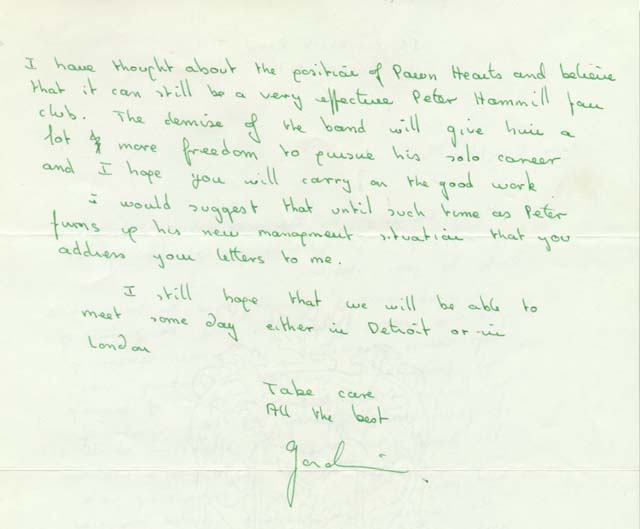 I have thought about the position of Pawn Hearts and believe
that it can still be a very effective Peter Hammill fan
club. The demise of the band will give him a
lot more freedom to pursue his solo career
and I hope you will carry on the good work
I would suggest that until such time as Peter
firms up his new managment situation that you
address your letters to me.
I still hope that we will be able to
meet some day either in Detroit or in
London
Take care
All the best
Gordian